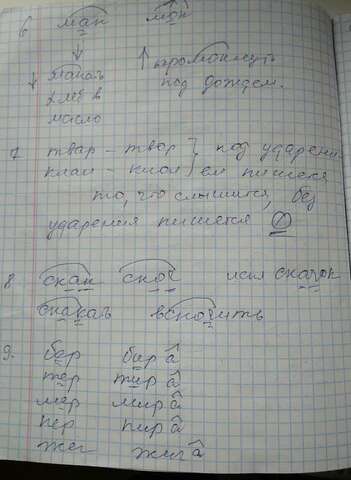 6 мак мок
макать ↑ промокнуть
хлеб в под дождём.
масло
7 твар – твор } под ударени
клан – клон } ем пишется
то, что слышится, без
ударения пишется О
8 скак скоч искл скачок
скакать вскочить
9. бер бир а
тер тир а
мер мир а
пер пир а
жег жиг а